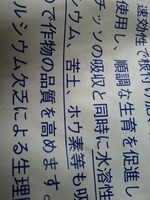 速効性で根付の肥
使用し、順調な生育を促進し
チッソの吸収と同時に水溶性
シウム、苦土、ホウ素等も吸
で作物の品質を高めます。
ルシウム欠乏による生理